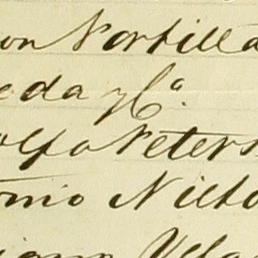 on Portilla
eda y Ca.
olfo Peters
onio Nieto